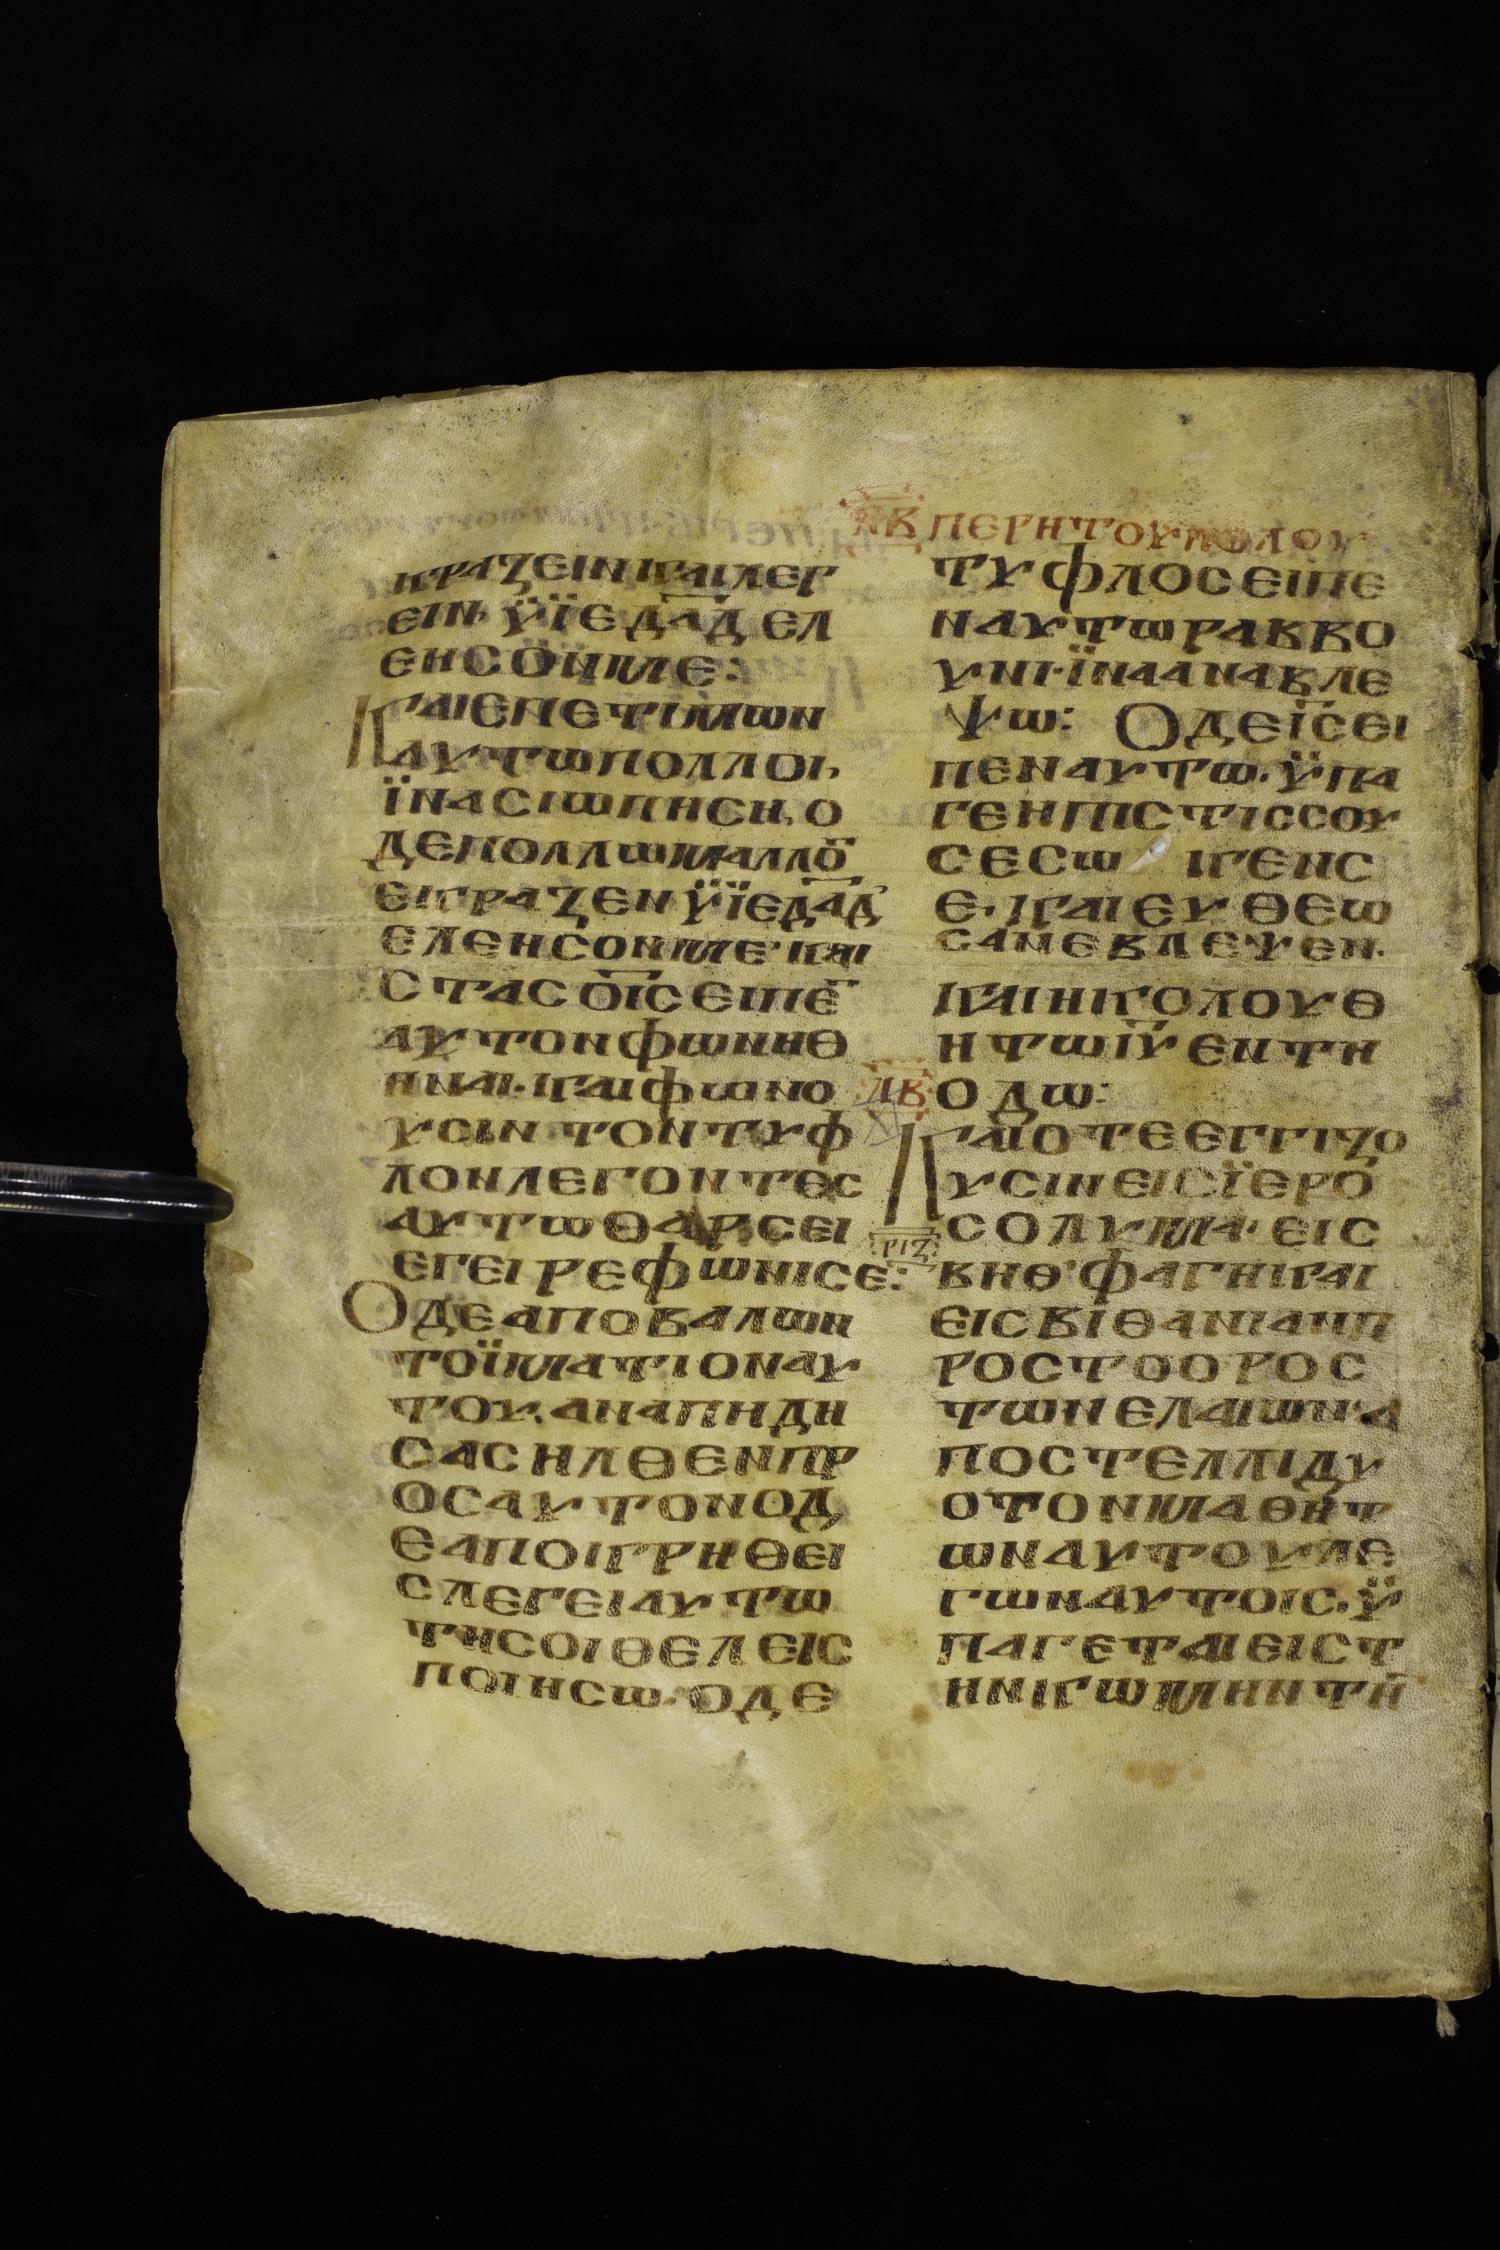 ΛΒ ΠΕΡΗΤΟΥΠΩΛΟΥ
ΚΡΑΖΕΙΝΚΑΙΛΕΓ
ΕΙΝ· ΫΪΕΔΑΔ ΕΛ
ΕΗСΟΝΜΕ:
ΚΑΙΕΠΕΤΙΜΩΝ
ΑΥΤΩΠΟΛΛΟΙ,
ΪΝΑСΙΩΠΗСΗ, Ο
ΔΕΠΟΛΛΩΜΑΛΛΟ̅
ΕΚΡΑΖΕΝΫΪΕΔΑΔ
ΕΛΕΗСΟΝΜΕ·ΚΑΙ
СΤΑСΟΙ̅С̅ΕΙΠΕ̅
ΑΥΤΟΝΦΩΝΗΘ
ΗΝΑΙ·ΚΑΙΦΩΝΟ
ΥСΙΝΤΟΝΤΥΦ
ΛΟΝΛΕΓΟΝΤΕС
ΑΥΤΩΘΑΡСΕΙ
ΕΓΕΙΡΕΦΩΝΙСΕ:
ΟΔΕΑΠΟΒΑΛΩΝ
ΤΟΪΜΑΤΙΟΝΑΥ
ΤΟΥ·ΑΝΑΠΗΔΗ
СΑСΗΛΘΕΝΠΡ
ΟСΑΥΤΟΝΟΔ
ΕΑΠΟΚΡΗΘΕΙ
СΛΕΓΕΙΑΥΤΩ
ΤΗСΟΙΘΕΛΕΙС
ΠΟΙΗСΩ·ΟΔΕ
ΤΥΦΛΟСΕΙΠΕ
ΝΑΥΤΩΡΑΒΒΟ
ΥΝΙ·ΪΝΑΑΝΑΒΛΕ
ΨΩ: ΟΔΕΙ̅С̅ΕΙ
ΠΕΝΑΥΤΩ·ΫΠΑ
ΓΕΗΠΙСΤΙССΟΥ
СΕСΩ ΚΕΝС
Ε·ΚΑΙΕΥΘΕΩ
СΑΝΕΒΛΕΨΕΝ·
ΚΑΙΗΚΟΛΟΥΘ
ΗΤΩΙ̅Υ̅ΕΝΤΗ
ΛΒ ΟΔΩ:
ΚΑΙΟΤΕΕΓΓΙΖΟ
ΥСΙΝΕΙСΪΕΡΟ
ΡΙΖ СΟΛΥΜΑ·ΕΙС
ΒΗΘ'ΦΑΓΗΚΑΙ
ΕΙСΒΙΘΑΝΙΑΝΠ
ΡΟСΤΟΟΡΟС
ΤΩΝΕΛΑΙΩΝ·Α
ΠΟСΤΕΛΛΙΔΥ
ΟΤΟΝΜΑΘΗΤ
ΩΝΑΥΤΟΥΛΕ
ΓΩΝΑΥΤΟΙС·Ϋ
ΠΑΓΕΤΑΙΕΙСΤ
ΗΝΚΩΜΗΝΤΗ̅